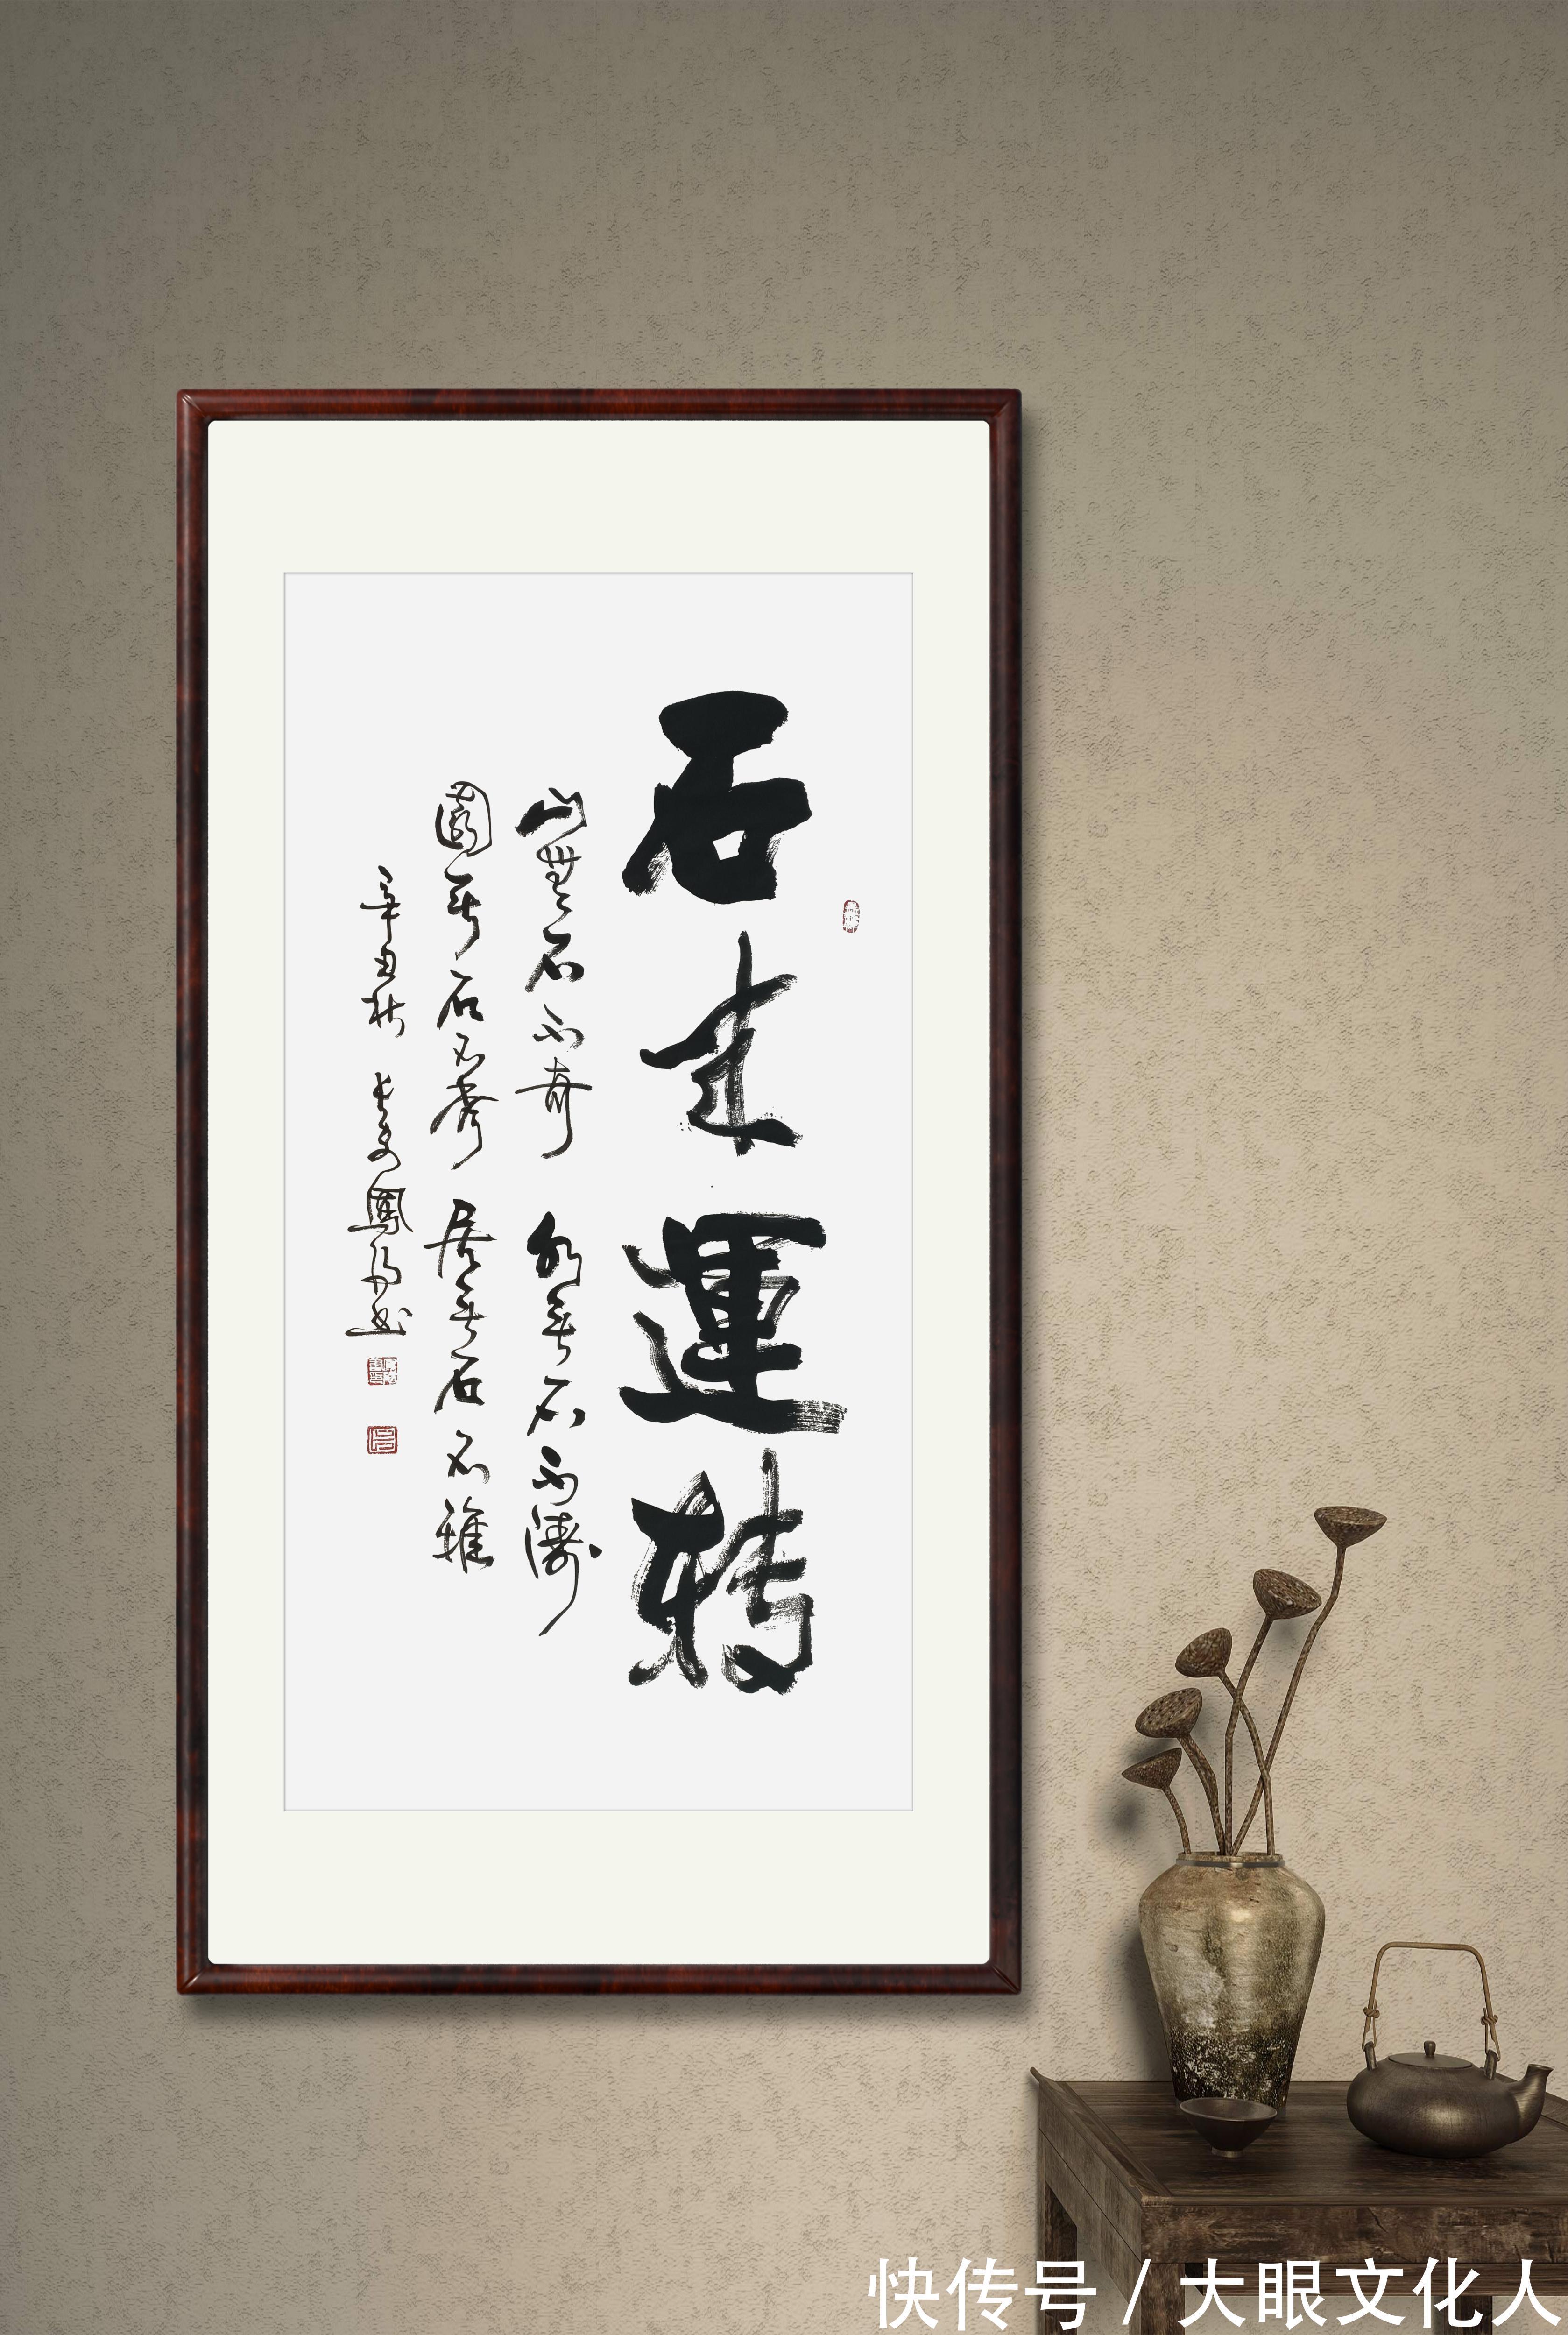 石来運转
山無石不奇 水無石不濤
園無石不秀 居無石不雅
辛丑秋 长安鳳 书
快传号 / 大眼文化人